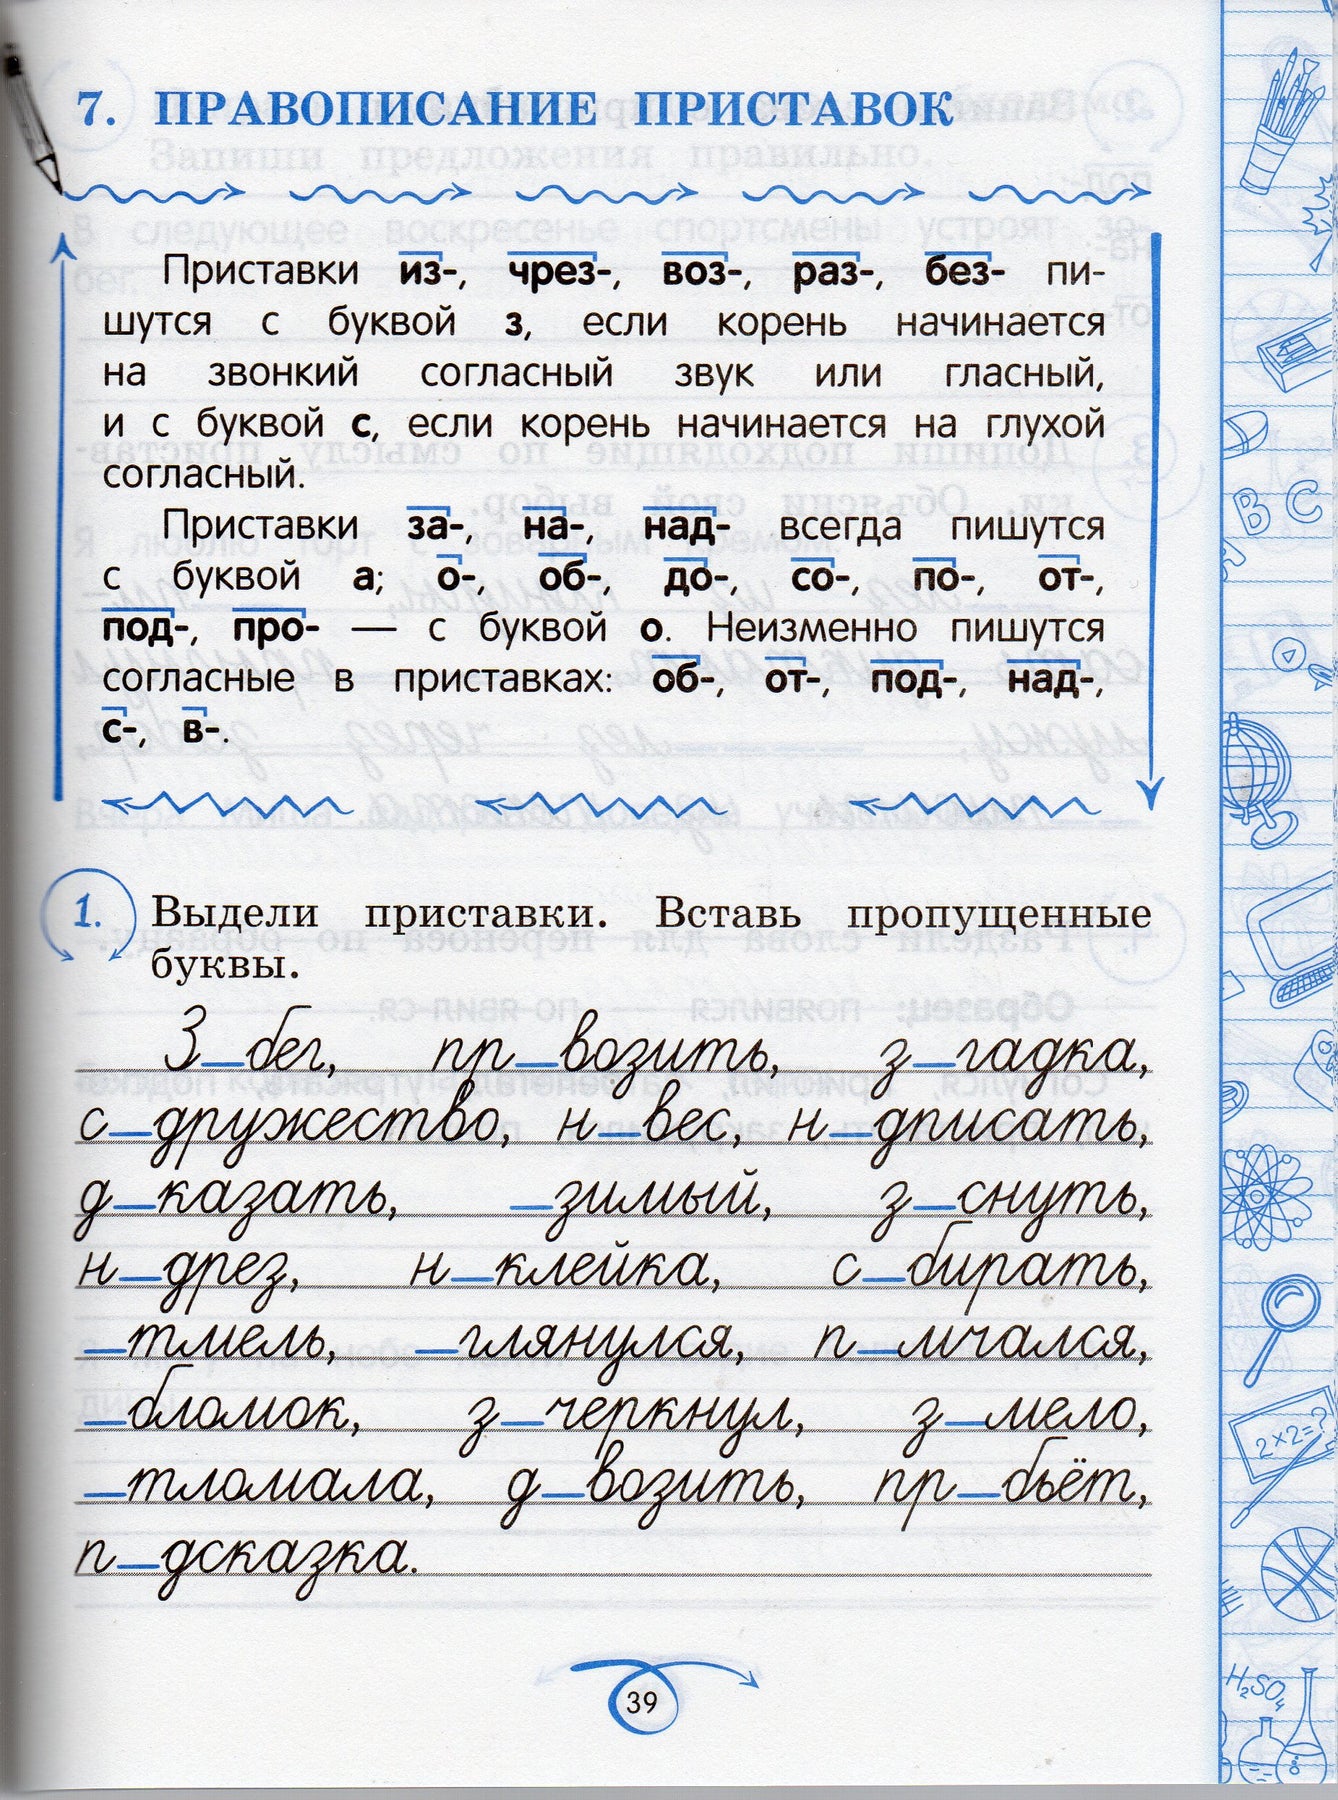 7. ПРАВОПИСАНИЕ ПРИСТАВОК
Приставки из-, чрез-, воз-, раз-, без- пи-
шутся с буквой з, если корень начинается
на звонкий согласный звук или гласный,
и с буквой с, если корень начинается на глухой
согласный.
Приставки за-, на-, над- всегда пишутся
с буквой а; о-, об-, до-, со-, по-, от-,
под-, про- — с буквой о. Неизменно пишутся
согласные в приставках: об-, от-, под-, над-,
с-, в-.
1. Выдели приставки. Вставь пропущенные
буквы.
З_бег, пр_возить, з_гадка,
с_дружество, н_вес, н_дписать,
д_казать, _зимый, з_снуть,
н_дрез, н_клейка, с_бирать,
_тмель, _глянулся, п_мчался,
_бломок, з_черкнул, з_мело,
_тломала, д_возить, пр_бьёт,
п_дсказка.
39
B C
2×2=?
H₂SO₄